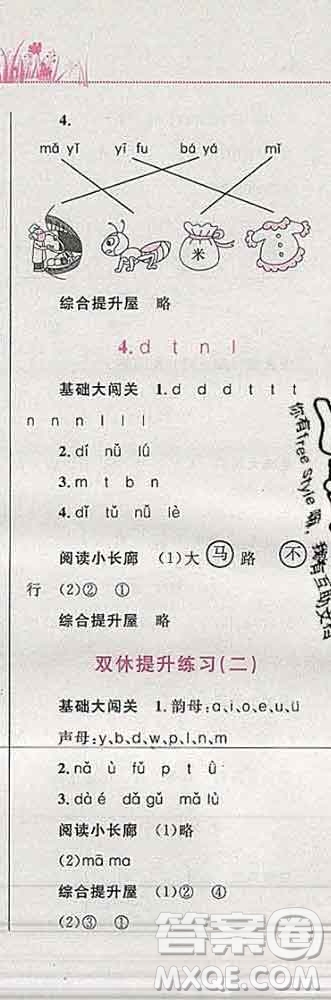 4.
mǎ yǐ yī fu bá yá mǐ
米
综合提升屋 略
4. d t n l
基础大闯关 1. d d d t t t
n n n l l l
2. dǐ nǚ lú
3. m t b n
4. dǐ tǔ nǚ lè
阅读小长廊 (1)大 马 路 不
行 (2)② ①
综合提升屋 略
双休提升练习(二)
基础大闯关 1. 韵母:a、i、o、e、u、ü
声母:y、b、d、w、p、t、l、n
2. nǎ ù fǔ p t û
3. dà é mǎ lù
阅读小长廊 (1)略
(2) mā ma
综合提升屋 (1)② ④
(2)③ ①
你有free style嘛,我有自助文档
答案圈
MXQE.COM